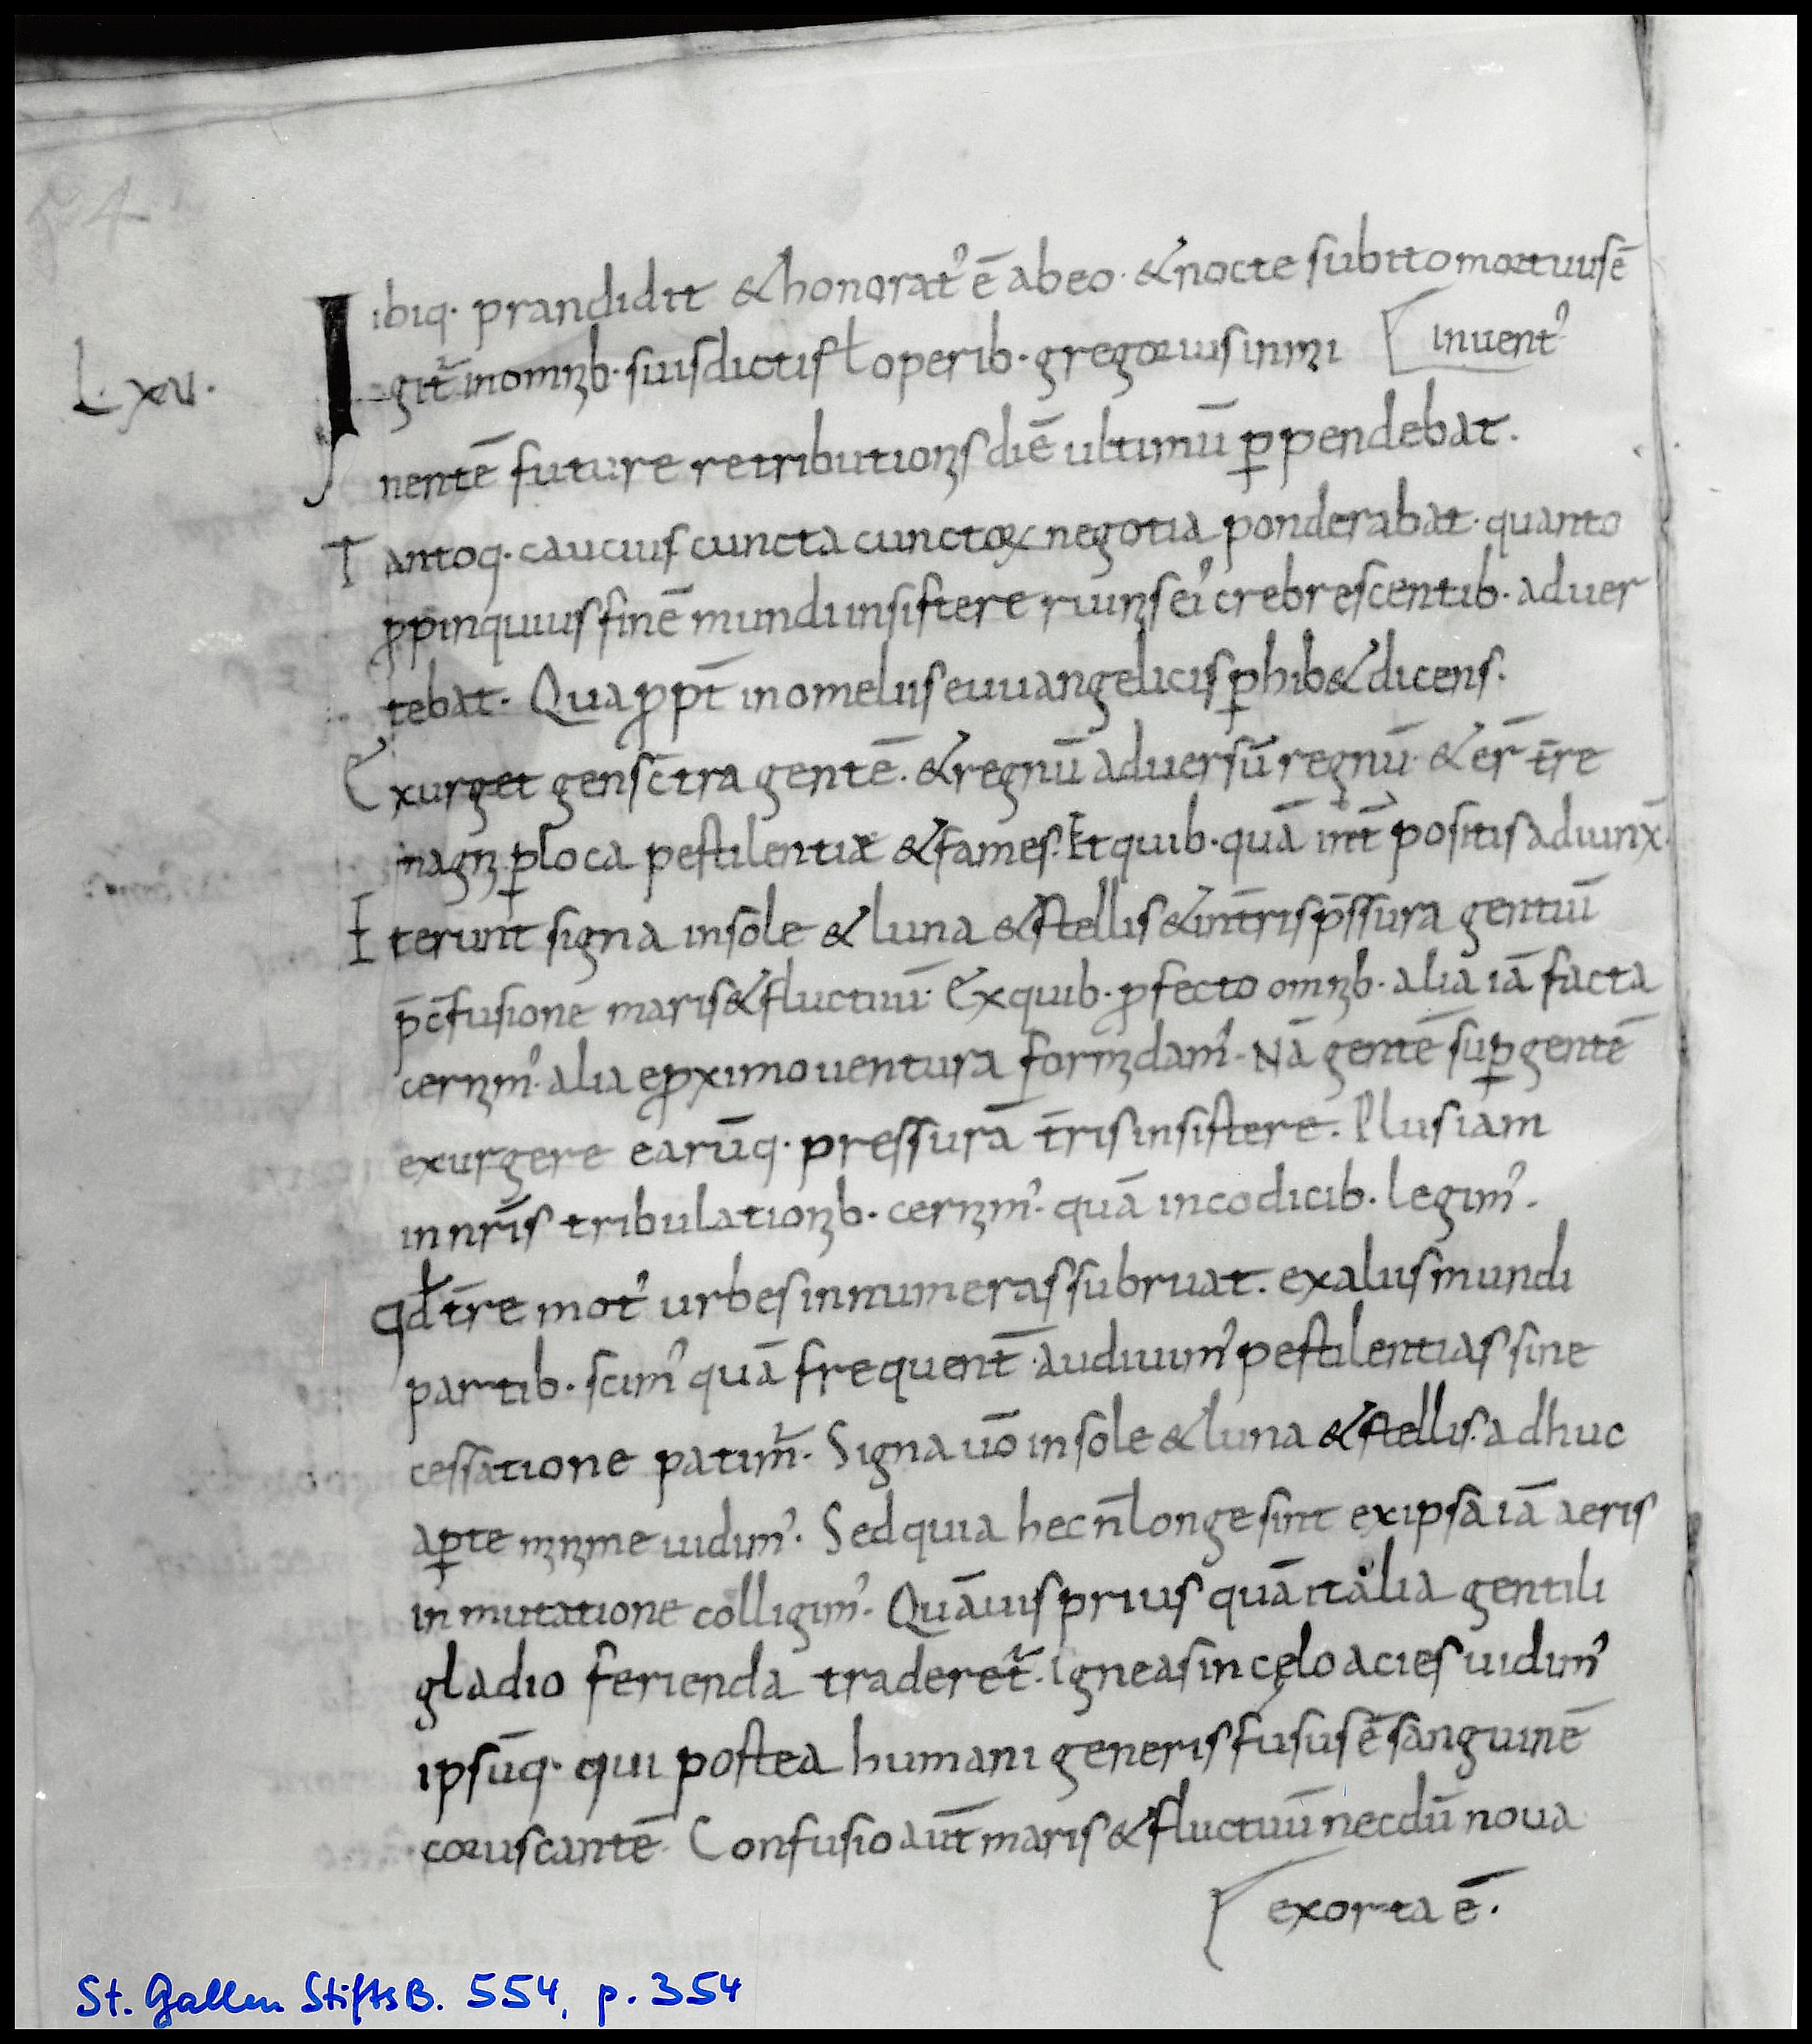 54
ibiq· prandidit & honorat᾽ ē ab eo· & nocte subito mortuus ē
inuent᾽
L·xv· Igit̃ in omnıb· suis dictis ł operib· gregorius inmi
nentē future retributionis diē ultimū ꝑpendebat.
Tantoq· caucius cuncta cunctoꝝ negotia ponderabat· quanto
ꝓpinquius finē mundi insistere ruinis ei᾽ crebrescentib· aduer
tebat· Quaꝓpt̄ in omeliis euuangelicis ꝑhib& dicens·
Exurget gens c̄tra gentē· & regnū aduersū regnū· & er̄ t̄re
magni ꝑ loca pestilentiæ & fames· Et quib· quā int̄ positis adiunx̄·
Et erunt signa in sole & luna & stellis & in t̄ris p̄ssura gentiū
p̄ c̄fusione maris & fluctuū· Ex quib· ꝓfecto omnib· alia iā facta
cernim᾽· alia e ꝓximo uentura formidam᾽· Nā gentē suꝑ gentē
exurgere earūq· pressurā t̄ris insistere· Plus iam
in nr̄is tribulationib· cernim᾽· quā in codicib· legim᾽·
qđ t̄re mot᾽ urbes innumeras subruat· ex aliis mundi
partib· scim᾽ quā frequent̄ audiuim᾽ pestilentias sine
cessatione patim̃· Signa uō in sole & luna & stellis· adhuc
aꝑte minime uidim᾽· Sed quia hec n̄ longe sint ex ipsa iā aeris
inmutatione colligim᾽· Quāuis prius quā italia gentili
gladio ferienda traderet̃· igneas in cęlo acies uidim᾽
ipsūq· qui postea humani generis fusus ē sanguinē
coruscantē· Confusio aut̄ maris & fluctuū necdū noua
exorta ē·
St. Gallen StiftsB. 554, p. 354